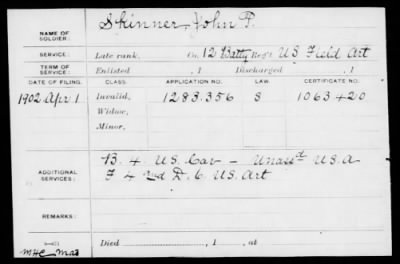 NAME OF SOLDIER: Skinner, John P.
SERVICE: Late rank, Co. 12 Batty Reg't US Field Art
TERM OF SERVICE: Enlisted , 1 Discharged , 1
DATE OF FILING. CLASS. APPLICATION NO. LAW. CERTIFICATE NO.
1902 Apr 1 Invalid, 1283.356 S 1063420
Widow,
Minor,
ADDITIONAL SERVICES: B. 4. US. Cav – Unassd U.S.A
F 4
REMARKS:
Died , 1 , at